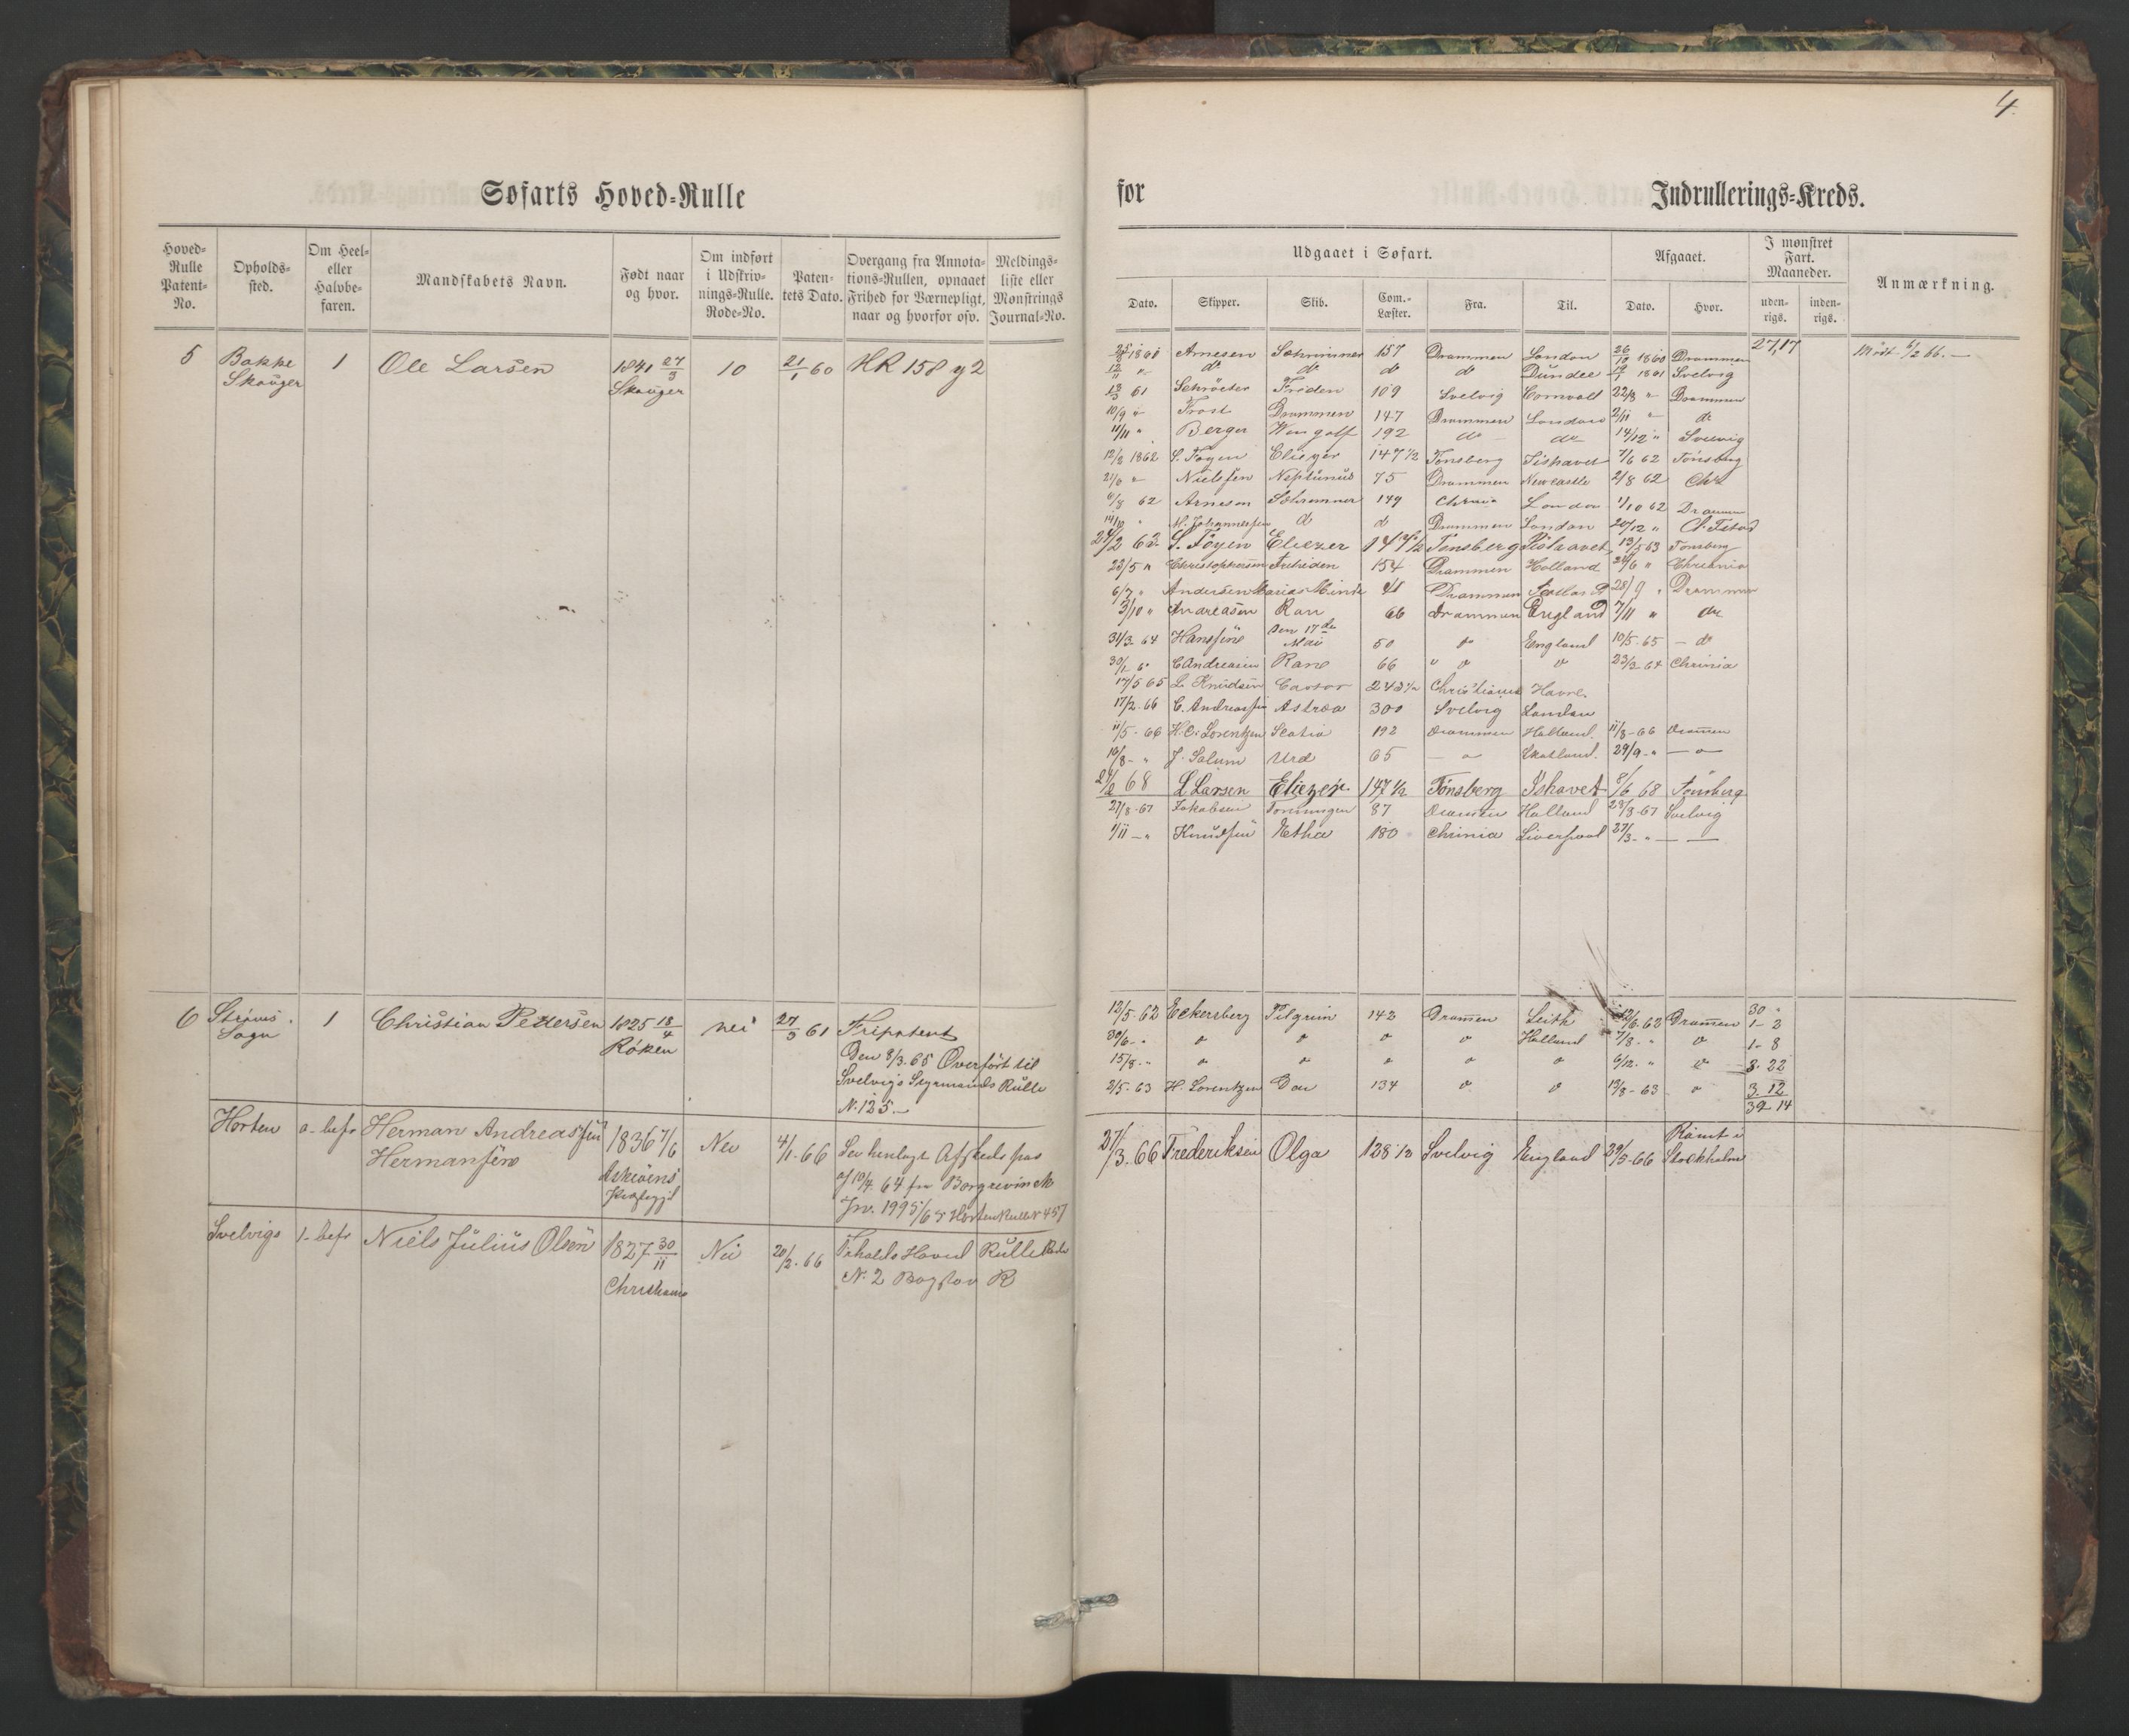 4.
Søfarts Hoved-Rulle
for Indrullerings-Kreds.
Hoved-Rulle Patent-No.
Opholds-sted.
Om Heel- eller Halvbe-faren.
Mandskabets Navn.
Født naar og hvor.
Om indført i Udskriv-nings-Rulle. Rode-No.
Paten-tets Dato.
Overgang fra Annota-tions-Rullen, opnaaet Frihed for Værnepligt, naar og hvorfor osv.
Meldings-liste eller Mønstrings Journal-No.
Udgaaet i Søfart.
Afgaaet.
I mønstret Fart. Maaneder.
Anmærkning.
Dato. Skipper. Skib. Com.-Læster. Fra. Til. Dato. Hvor. uden-rigs. inden-rigs.
5 Bakke 1 Ole Larsen 1841 27/3 10 21/1 60 HR 158 y 2
Skouger Skouger
1860 Arnesen 157 Drammen London 26/10 1860 Drammen 27,17 Mödt 6/2 66.
12/11 " do do do do Dundee 1861 Svelvig
13/3 61 Schröeter Friden 109 Svelvig Cornvall 22/8 " Drammen
10/9 " Frost Drammen 147 Drammen London 2/11 " do
11/11 " Berger Wingolf 192 do do 14/12 " Svelvig
12/2 1862 S. Foyen Eliezer 147 1/2 Tønsberg Ishavet 7/6 62 Tønsberg
21/6 " Nielssen Neptunus 75 Drammen Newcastle 2/8 62 Chr
6/8 62 Arnesen 149 Chrnia London 1/10 62 Drammen
14/10 " M. Johannessen d d Drammen London 20/12 "
24/2 63. S. Föyen Eliezer 147 1/2 Tønsberg Ishavet 13/5 63 Tønsberg
23/5 " Christophersen 154 Drammen Holland 24/6 " Chrania
6/7 " Andersen Marias Minde Drammen 28/9 " Drammen
3/10 " Andreasen Ran 66 Drammen England 7/11 " do
31/3. 64 Hanssen Den 17de Mai 50 do England 10/5-65 - do
30/1 C Andreasen Rane 66 " do do 23/3-64 Chrinia
17/5 65 L. Knudsen Castor 243 1/2 Christiania Havre.
17/2. 66 C. Andreassen Astrea 300 Svelvig London
11/5-66 H. C. Lorentzen Scatia 192 Drammen Holland. 11/8-66 Dramen
16/8- " J. Solum Urd 65 — do Skotland. 29/9- " — do
24/2 68 L Larsen Eliezer 147 1/2 Tønsberg Ishavet 8/6 68 Tønsberg
27/8-67 Jakobsen 87 Dramen Holland 23/9-67 Svelvig
1/11 — " Knudsen Etha 180 Chrinia Liverpool 27/3- " — —
6 Strøms 1 Christian Pettersen 1825 18/4 nei 27/3 61 Fripatent
Sogn Røken Den 8/3. 65 Overført til
Svelvigs Styrmands Rulle
N. 125.—
12/5-62 Eckersberg Pilgrim 142 Dramen Leith 12/6-62 Dramen 30 "
30/6-" do do do do Holland 7/8- " do 1- 2
1- 8
15/8- " do do do do do 6/12. " do 3. 22
2/5-63 H. Lorentzen Dou 134 do do 13/8-63 do 3. 12
39-14
Horten a-befr Herman Andreassen 1836 7/6 Nei 4/1-66 Sev henlagt Afskeds pas
Hermansen af 10/4. 64 fra Borgrevinck
Jnr. 1995/65 Horten Rulle N 457
27/3. 66 Frederiksen Olga 128 1/2 Svelvig England 29/5-66 Rømt i Stockholm
Svelvigs 1-befr Niels Julius Olsen 1827 30/11 Nei 20/2-66 Hoved Rulle
Christiania N. 2 Bogstav R